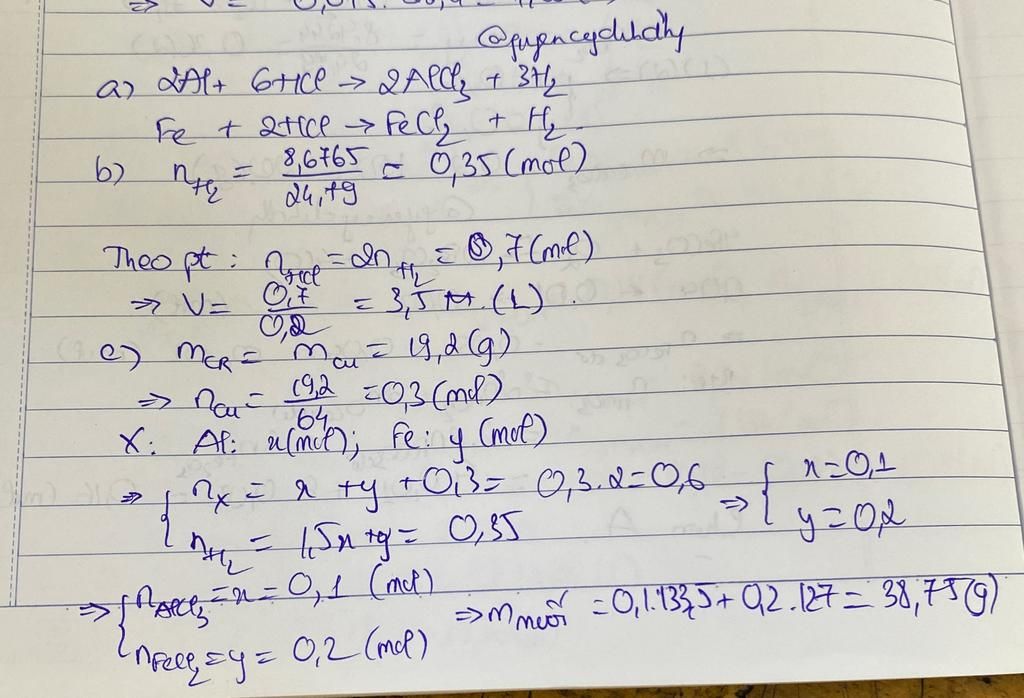 ⇒ V =
@quyncydchdhy
a) 2Al + 6HCl → 2AlCl₃ + 3H₂
Fe + 2HCl → FeCl₂ + H₂
b) n_H₂ = 8,6765/24,79 = 0,35 (mol)
Theo pt: n_HCl = 2n_H₂ = 0,7 (mol)
⇒ V = 0,7/0,2 = 3,5 (L).
c) m_CR = m_Cu = 19,2 (g)
⇒ n_Cu = 19,2/64 = 0,3 (mol)
X: Al: x (mol); Fe: y (mol)
⇒ { n_X = x + y + 0,3 = 0,3.2 = 0,6 ⇒ { x = 0,1
n_H₂ = 1,5x + y = 0,35 y = 0,2
⇒ { n_AlCl₃ = x = 0,1 (mol) ⇒ m_muối = 0,1.133,5 + 0,2.127 = 38,75 (g)
n_FeCl₂ = y = 0,2 (mol)